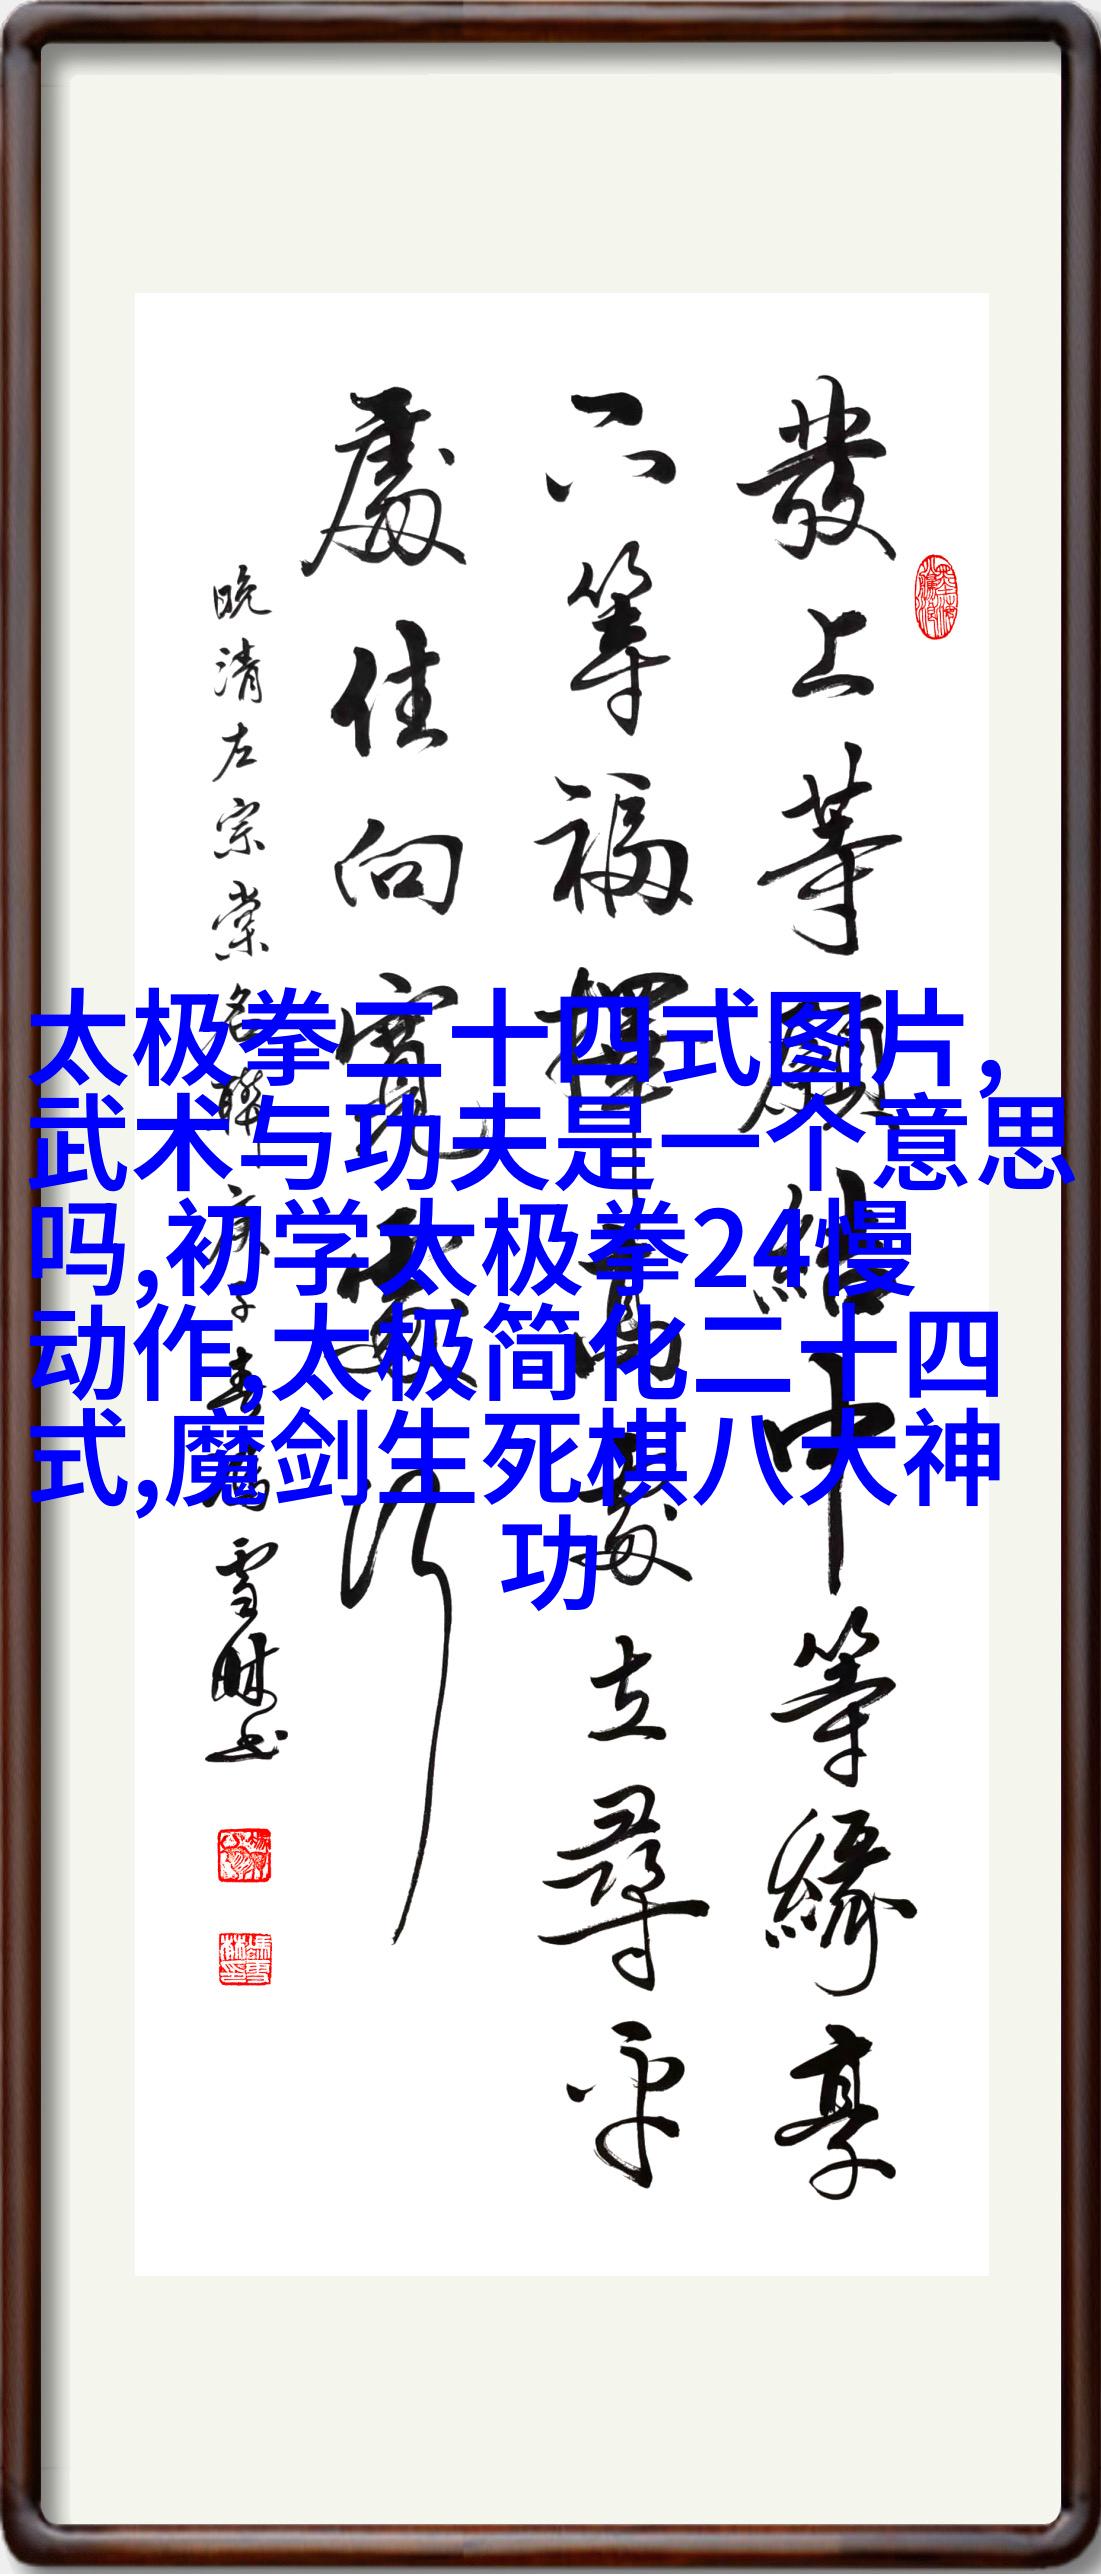 發上等願結中等緣享
下等福擇高處立尋平
處住向寬處行
晚清左宗棠名聯庚子春馮雪林書
太极拳二十四式图片,
武术与功夫是一个意思
吗,初学太极拳24慢
动作,太极简化二十四
式,魔剑生死棋八大神
功